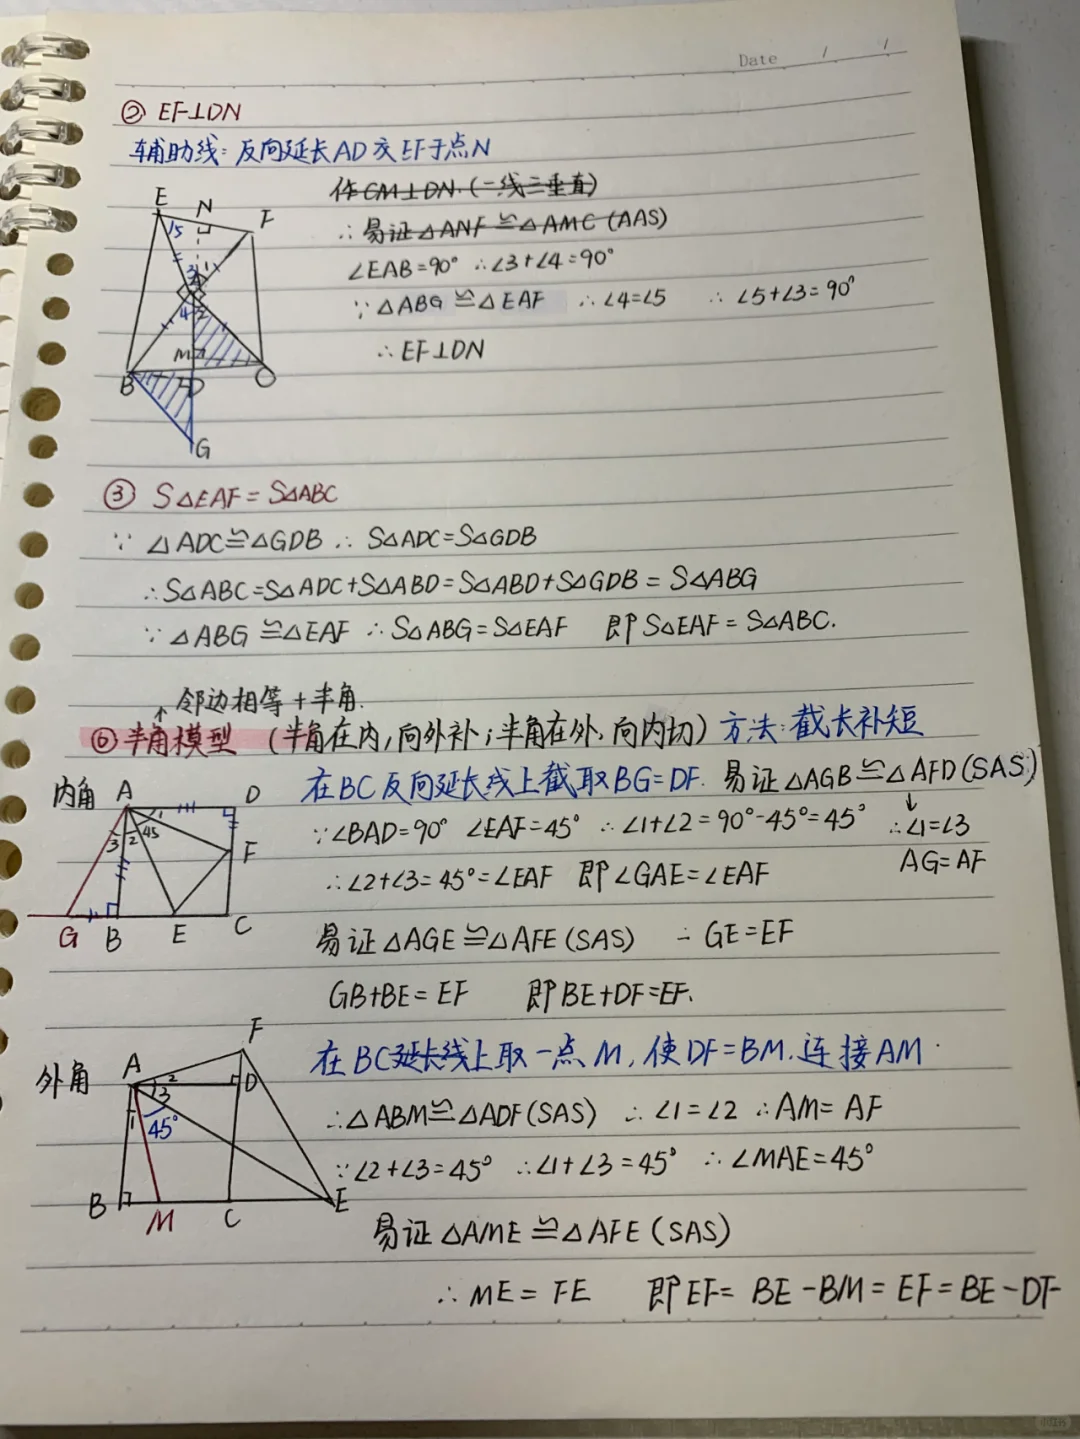 Date / /
② EF⊥DN
辅助线: 反向延长AD交EF于点N
作CM⊥DN.(一线三垂直)
∴易证△ANF≌△AMC (AAS)
∠EAB=90° ∴∠3+∠4=90°
∵△ABG≌△EAF ∴∠4=∠5 ∴∠5+∠3=90°
∴EF⊥DN
E N F
5
3 1
4 2
M
B D C
G
③ S△EAF=S△ABC
∵△ADC≌△GDB ∴S△ADC=S△GDB
∴S△ABC=S△ADC+S△ABD=S△ABD+S△GDB=S△ABG
∵△ABG≌△EAF ∴S△ABG=S△EAF 即S△EAF=S△ABC.
↑邻边相等+半角.
⑥半角模型 (半角在内,向外补;半角在外,向内切) 方法:截长补短
内角 在BC反向延长线上截取BG=DF. 易证△AGB≌△AFD(SAS)
∵∠BAD=90° ∠EAF=45° ∴∠1+∠2=90°-45°=45° ∴∠1=∠3
∴∠2+∠3=45°=∠EAF 即∠GAE=∠EAF AG=AF
易证△AGE≌△AFE(SAS) ∴GE=EF
GB+BE=EF 即BE+DF=EF.
A D
1
3 2 45
F
G B E C
外角 在BC延长线上取一点M,使DF=BM.连接AM.
∴△ABM≌△ADF(SAS) ∴∠1=∠2 ∴AM=AF
∵∠2+∠3=45° ∴∠1+∠3=45° ∴∠MAE=45°
易证△AME≌△AFE(SAS)
∴ME=FE 即EF=BE-BM=EF=BE-DF
F
A 2 D
3
1 45°
B M C E